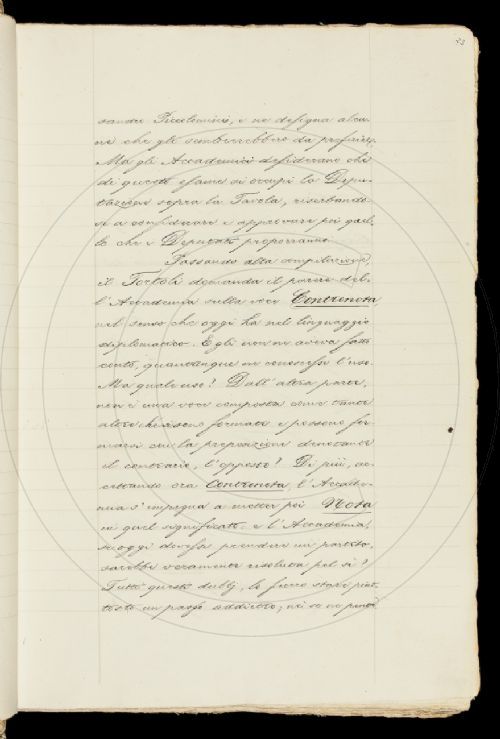 23
sandro Piccolomini, e ne disegna alcu-
ni che gli sembrerebbero da preferirsi.
Ma gli Accademici desiderano che
di questo esame si occupi la Depu-
tazione sopra la Tavola, riserbando-
si a considerare e approvare poi quel-
lo che i Deputati proporranno.
Passando alla compilazione,
il Tortoli domanda il parere del-
l'Accademia sulla voce Contronota
nel senso che oggi ha nel linguaggio
diplomatico. Egli non ne aveva fatto
conto, quantunque ne conoscesse l'uso.
Ma quale uso? Dall'altra parte,
non è una voce composta come tante
altre che sono formate e possono for-
marsi con la preposizione denotante
il contrario, l'opposto? Di più, ac-
cettando ora Contronota l'Accade-
mia s'impegna a metter poi Nota
in quel significato: e l'Accademia,
se oggi dovesse prendere un partito,
sarebbe veramente risoluta pel sì?
Tutti questi dubbj, lo fecero stare piut-
tosto un passo addietro; nè se ne pentì